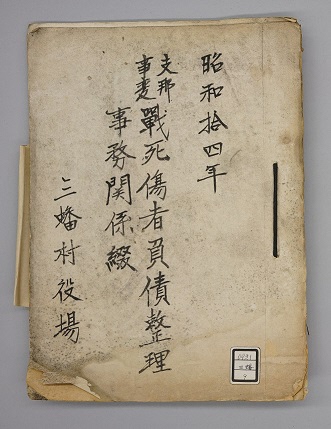 昭和拾四年
支那
事変
戰死傷者負債整理
事務関係綴
三蟠村役場